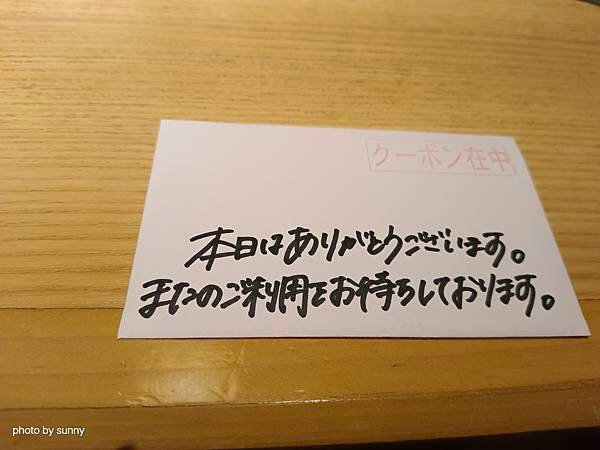 クーポン在中
本日はありがとうございます。
またのご利用をお待ちしております。
photo by sunny